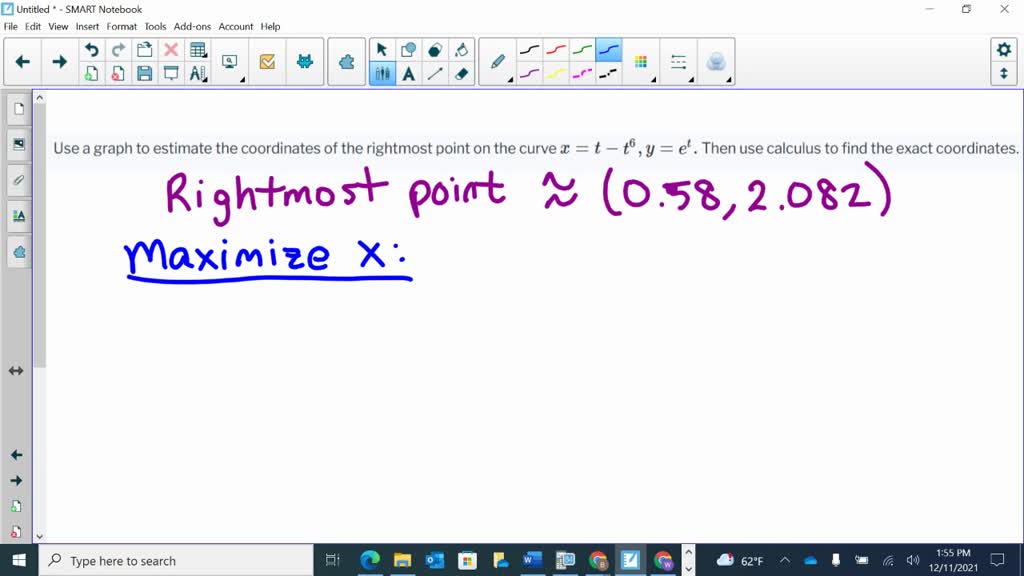 Untitled * - SMART Notebook
File Edit View Insert Format Tools Add-ons Account Help
Use a graph to estimate the coordinates of the rightmost point on the curve x = t − t⁶, y = eᵗ. Then use calculus to find the exact coordinates.
Rightmost point ≈ (0.58, 2.082)
Maximize x:
Type here to search
62°F
1:55 PM
12/11/2021